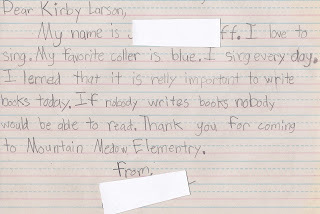 Dear Kirby Larson,
My name is ff. I love to
sing. My favorite coller is blue. I sing every day.
I lerned that it is relly important to write
books today. If nobody writes books nobody
would be able to read. Thank you for coming
to Mountain Medow Elementry.
from,